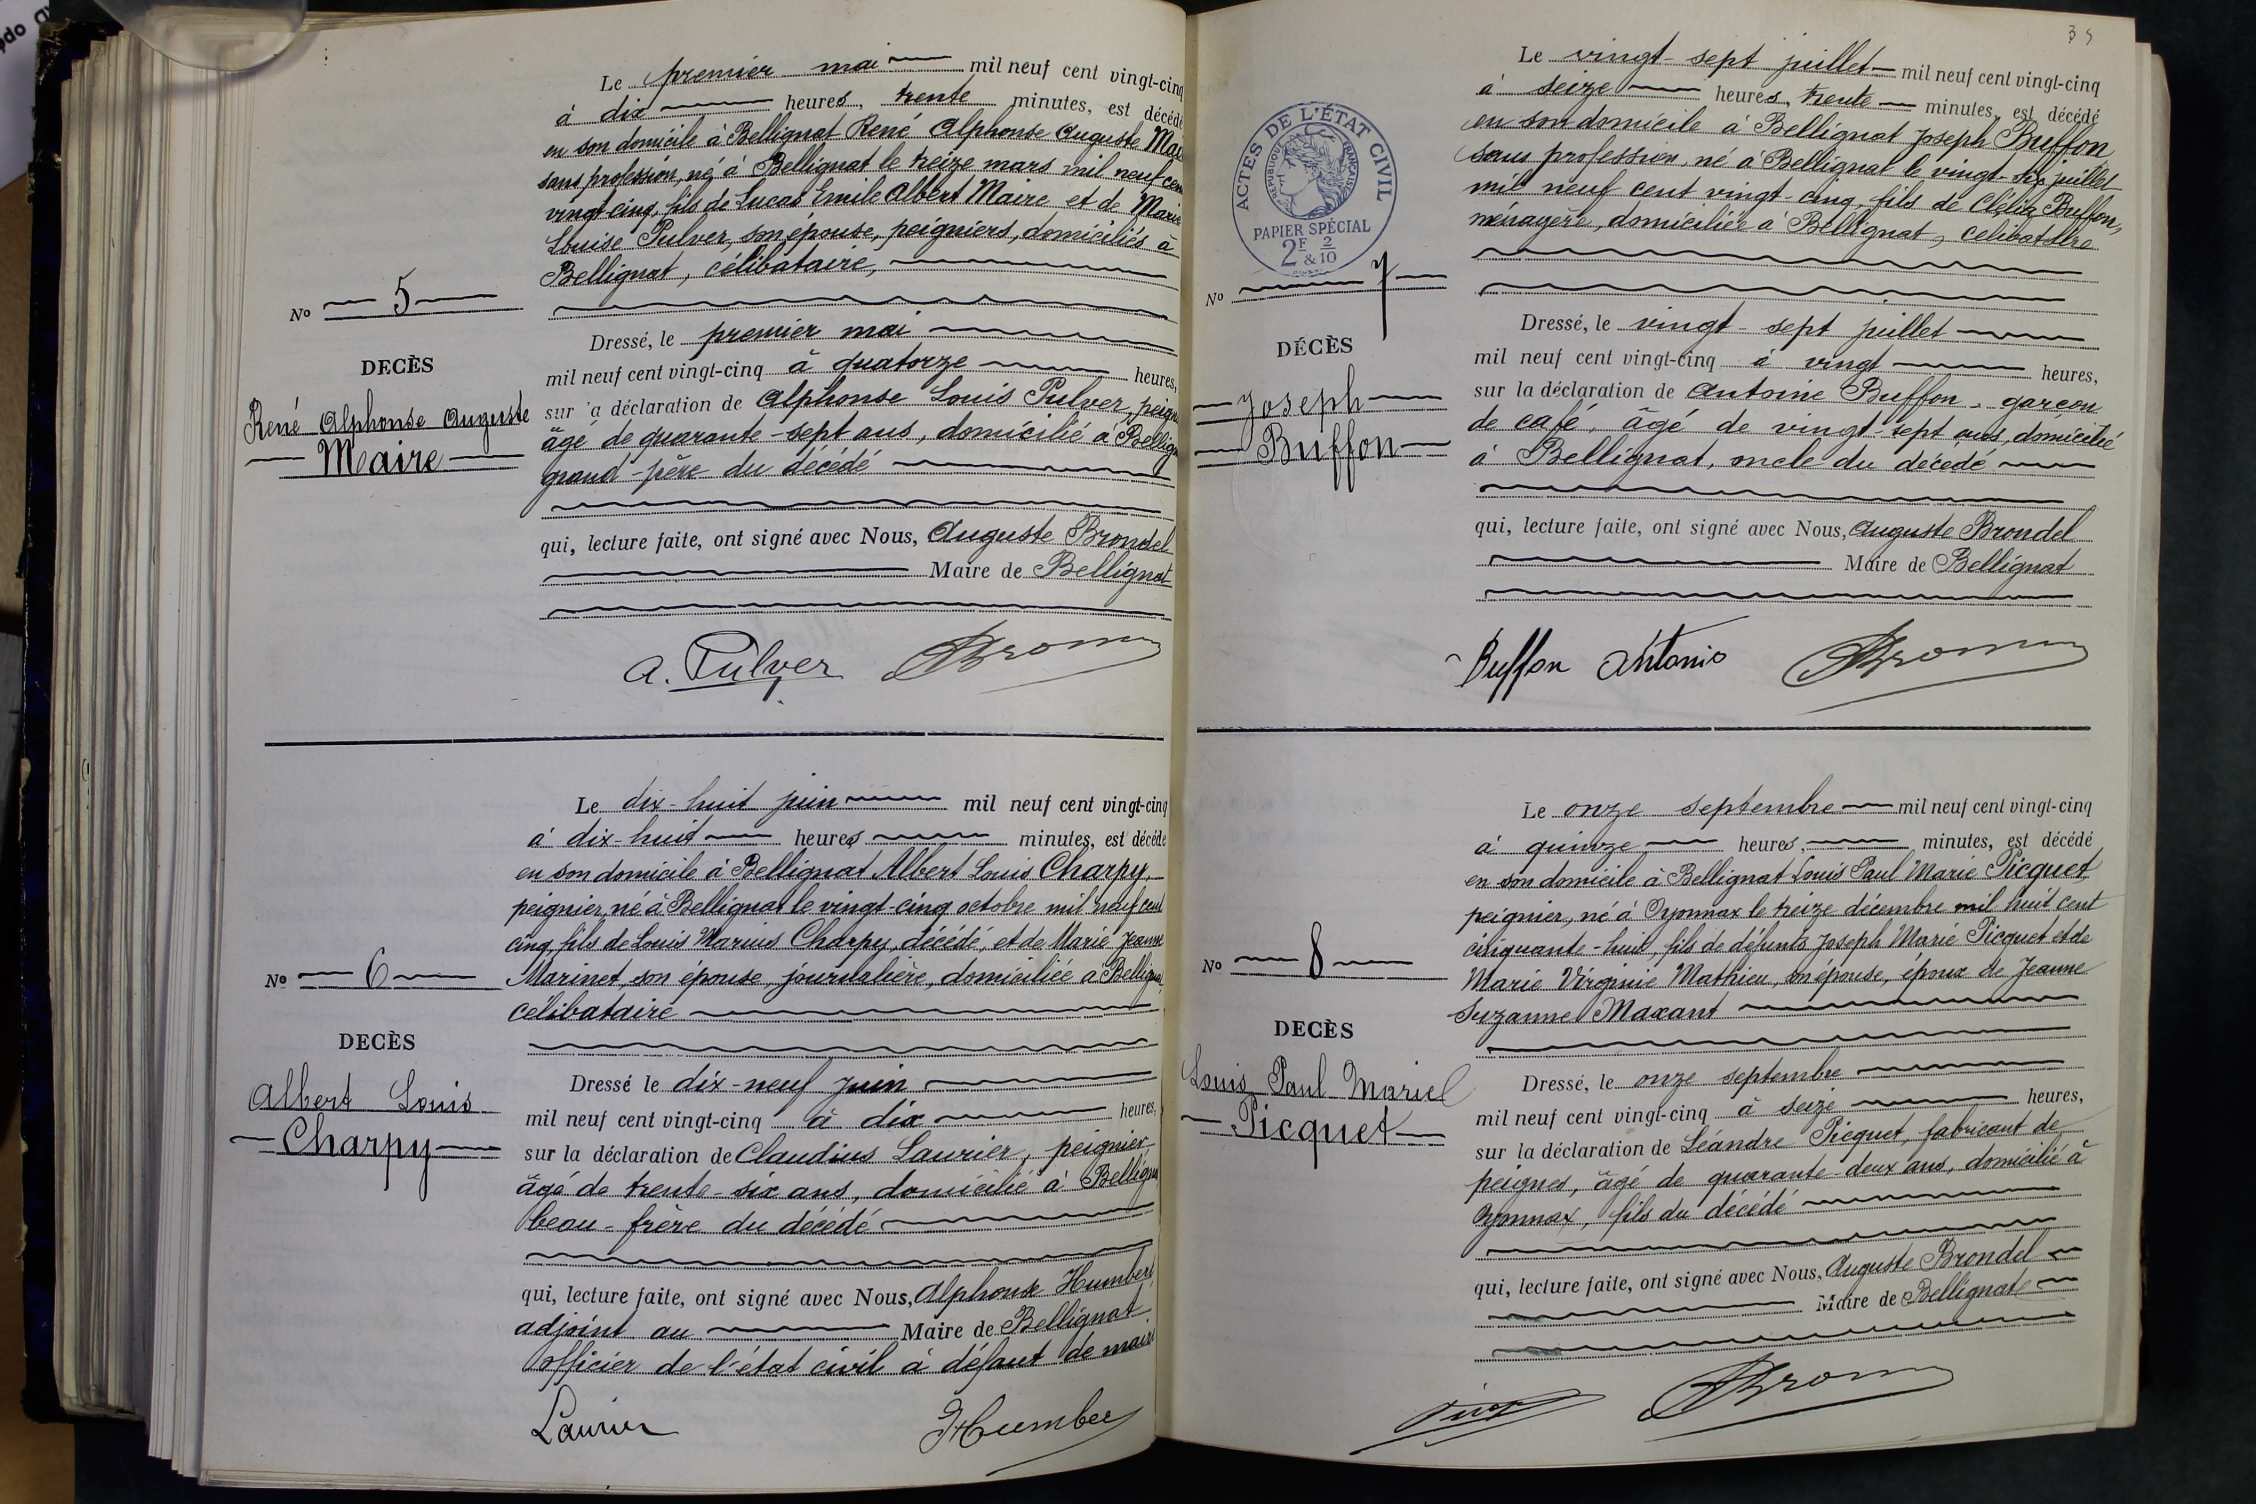 Le premier mai mil neuf cent vingt-cinq
à dix heures, trente minutes, est décédé
en son domicile à Bellignat René Alphonse Auguste
sans profession, né à Bellignat le treize mars mil neuf cen
vingt-cinq, fils de Lucas Emile Albert Maire et de Marie
Louise Pulver, son épouse, peigniers, domiciliés à
Bellignat, célibataire,
No 5
DECÈS
René Alphonse Auguste
Maire
Dressé, le premier mai
mil neuf cent vingt-cinq à quatorze heures,
sur la déclaration de Alphonse Louis Pulver,
âgé de quarante-sept ans, domicilié à
grand-père du décédé
qui, lecture faite, ont signé avec Nous, Auguste Brondel
Maire de Bellignat
A. Pulver
Le dix-huit juin mil neuf cent vingt-cinq
à dix-huit heures minutes, est décédé
en son domicile à Bellignat Albert Louis Charpy,
peignier, né à Bellignat le vingt-cinq octobre mil neuf cent
cinq, fils de Louis Marius Charpy, décédé, et de Marie Jeanne
Marinet, son épouse, journalière, domiciliée à
célibataire
No 6
DECÈS
Albert Louis
Charpy
Dressé le dix-neuf juin
mil neuf cent vingt-cinq à dix heures,
sur la déclaration de Claudius Laurier, peignier
âgé de trente-six ans, domicilié à
beau-frère du décédé
qui, lecture faite, ont signé avec Nous, Alphonse Humbert
adjoint au Maire de Bellignat
officier de l'état civil à défaut de maire
Laurier
Humbert
35
Le vingt-sept juillet mil neuf cent vingt-cinq
à seize heures, trente minutes, est décédé
en son domicile à Bellignat Joseph Buffon
sans profession, né à Bellignat le vingt-six juillet
mil neuf cent vingt-cinq, fils de Clélia Buffon,
ménagère, domiciliée à Bellignat, célibataire
ACTES DE L'ÉTAT CIVIL
RÉPUBLIQUE FRANÇAISE
PAPIER SPÉCIAL
2F 2
&10
No 7
DÉCÈS
Joseph
Buffon
Dressé, le vingt-sept juillet
mil neuf cent vingt-cinq à vingt heures,
sur la déclaration de Antoine Buffon, garçon
de café, âgé de vingt-sept ans, domicilié
à Bellignat, oncle du décédé
qui, lecture faite, ont signé avec Nous, Auguste Brondel
Maire de Bellignat
Buffon Antonio
Le onze septembre mil neuf cent vingt-cinq
à quinze heures, minutes, est décédé
en son domicile à Bellignat Louis Paul Marie Picquet,
peignier, né à Oyonnax le treize décembre mil huit cent
cinquante-huit, fils de défunts Joseph Marie Picquet et de
Marie Virginie Mathieu, son épouse, époux de Jeanne
Suzanne Maxant
No 8
DECÈS
Louis Paul Marie
Picquet
Dressé, le onze septembre
mil neuf cent vingt-cinq à seize heures,
sur la déclaration de Léandre Picquet, fabricant de
peignes, âgé de quarante-deux ans, domicilié à
Oyonnax, fils du décédé
qui, lecture faite, ont signé avec Nous, Auguste Brondel
Maire de Bellignat